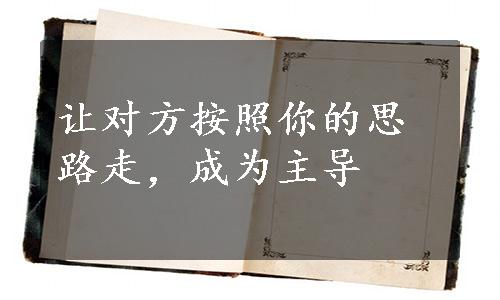 让对方按照你的思
路走，成为主导